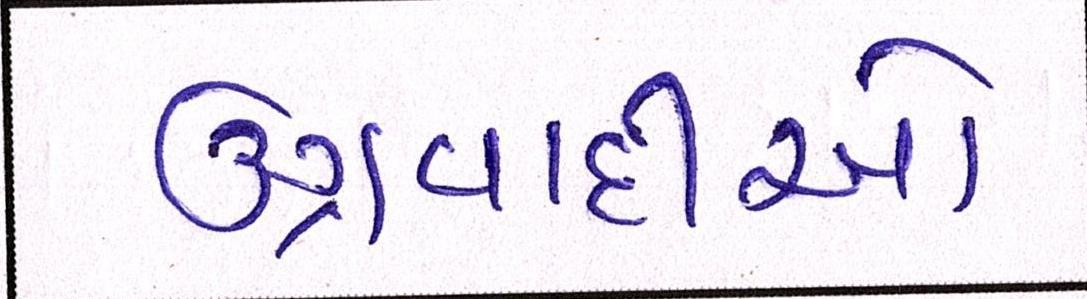 ઉગ્રવાદીઓ